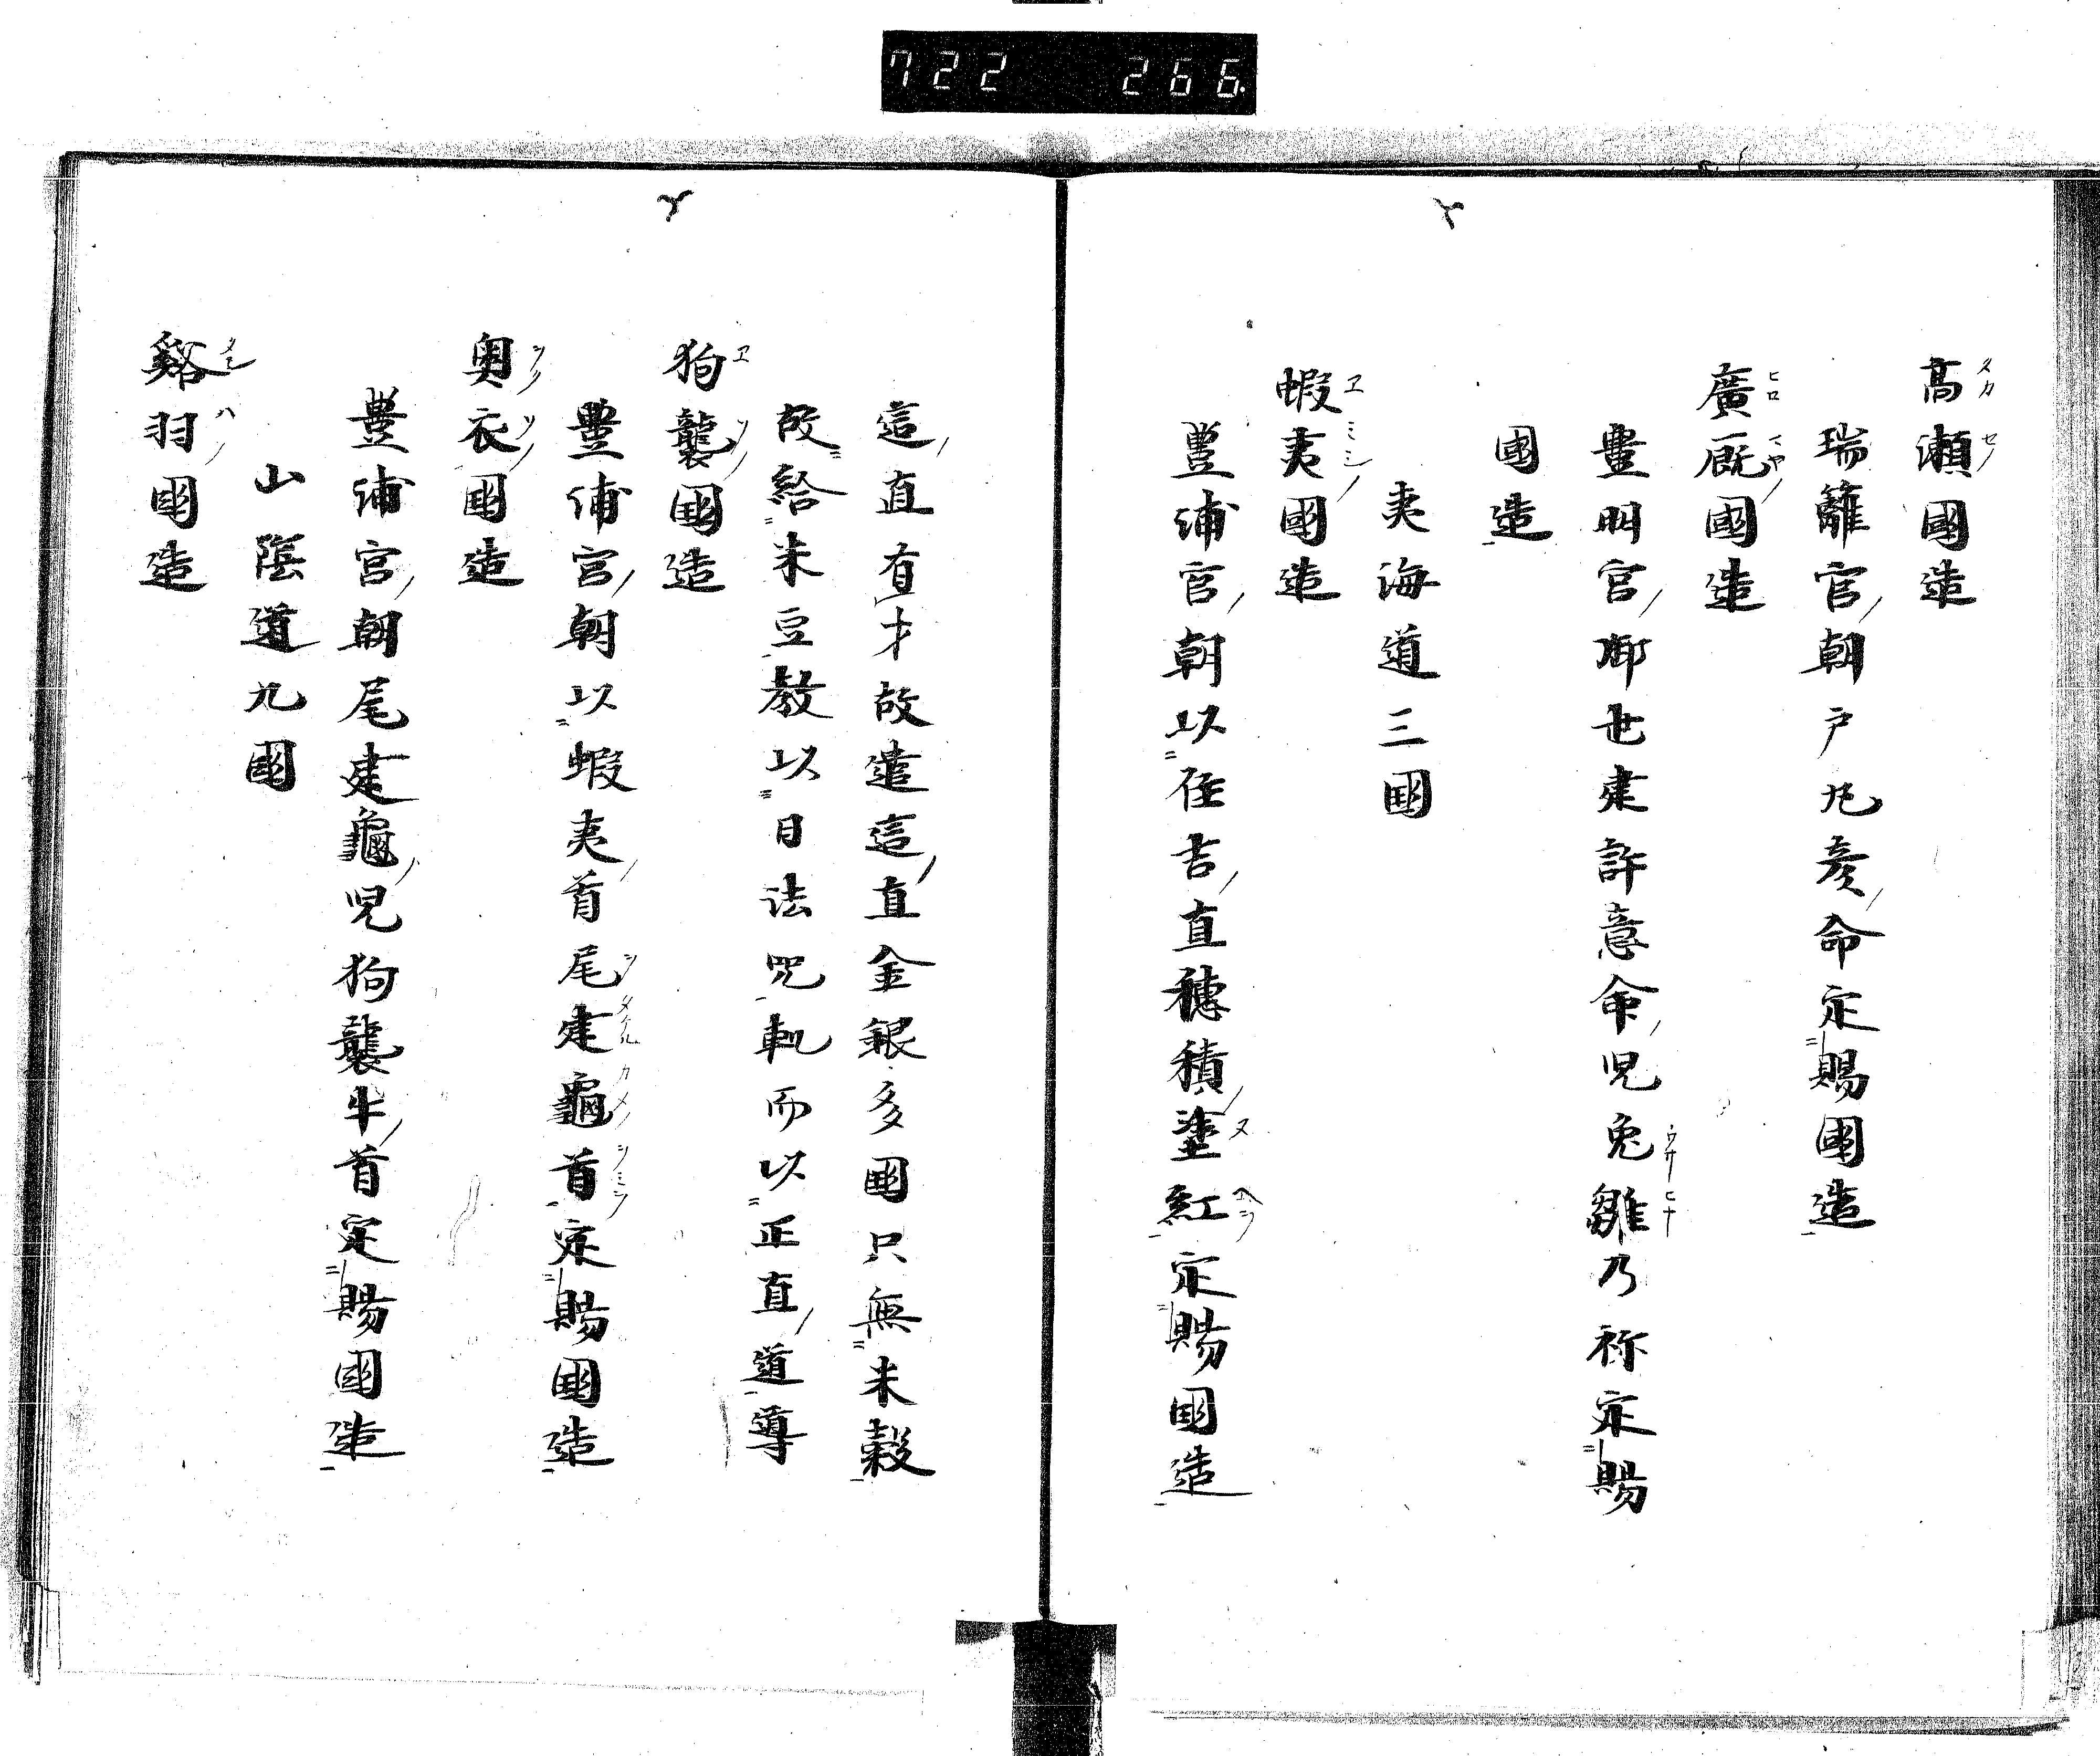 722 266
高瀬國造
瑞籬宮朝戸九彦命定賜國造
廣厩國造
豊明宮御世建許意命兒兔雛乃祢定賜
國造
夷海道三國
蝦夷國造
豊浦宮朝以住吉直穂積塗紅定賜國造
這直有才故遣這直金銀多國只無米穀
故給米豆教以日法咒軌而以正直道導
狗襲國造
豊浦宮朝以蝦夷首尾建龜首定賜國造
奥衣國造
豊浦宮朝尾建龜兒狗襲牛首定賜國造
山陰道九國
谿羽國造